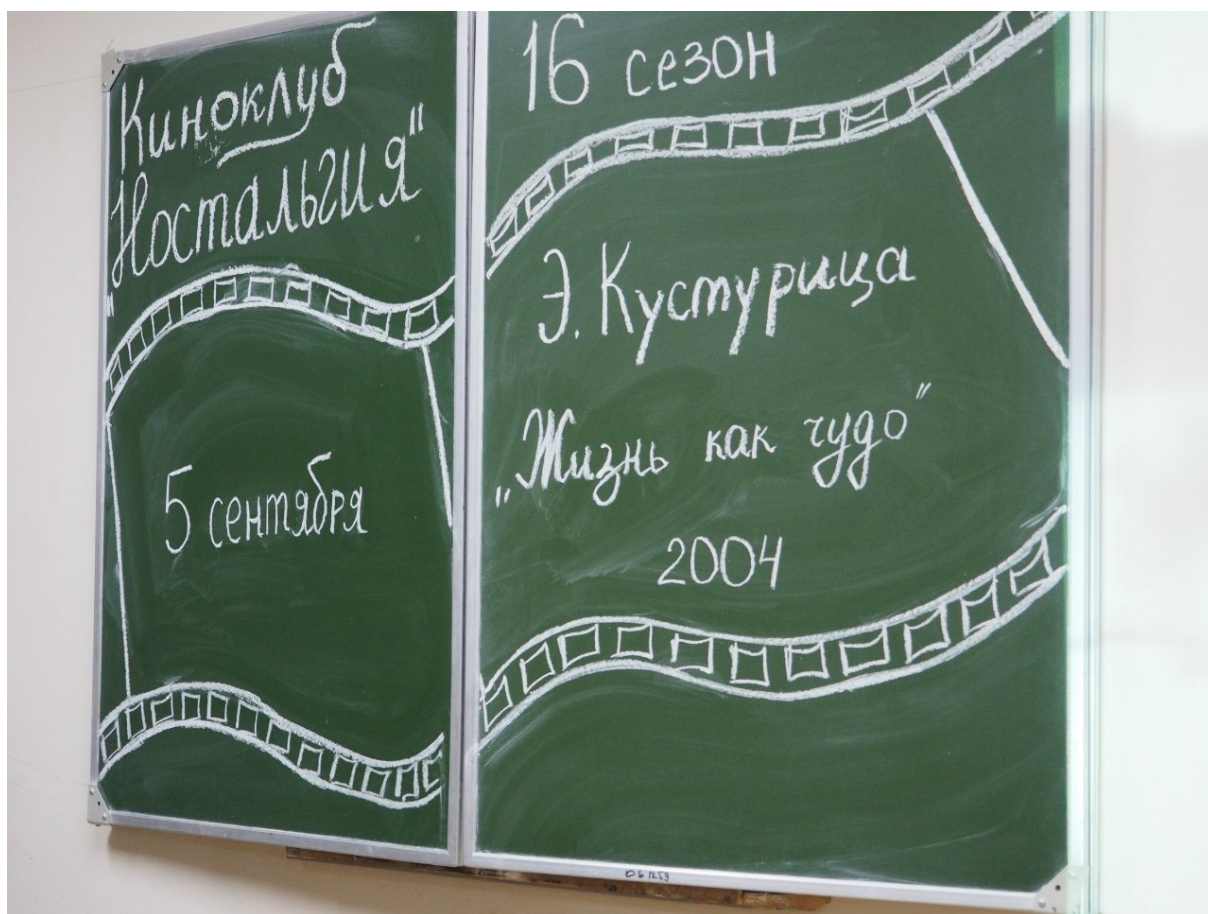 Киноклуб
„Ностальгия"
5 сентября
16 сезон
Э. Кустурица
„Жизнь как чудо"
2004